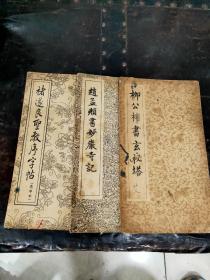 褚遂良聖教序字帖
趙孟頫書妙嚴寺記
柳公權書玄秘塔